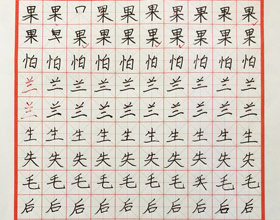 果 果 冂 果 果 果 果 果 果
果 旱 果 果 果 果 果 果 果
怕 怕 怕 怕 怕 怕 怕 怕 怕
兰 兰 兰 兰 兰 兰 兰 兰 兰
兰 兰 兰 兰 兰 兰 兰 兰 兰
生 生 生 生 生 生 生 生 生
失 失 失 失 失 失 失 失 失
毛 毛 毛 毛 毛 毛 毛 毛
后 后 后 后 后 后 后 后 后